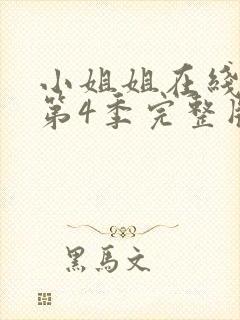 小姐姐在线
第4季完整
黑马文